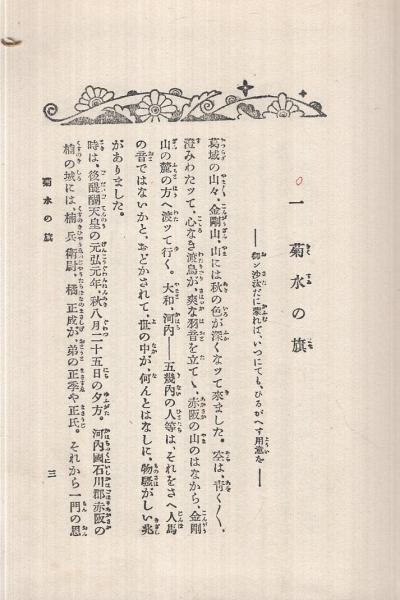 一 菊水の旗
――御ン沙汰だに蒙れば、いつにても、ひるがへす用意を――
葛城の山々、金剛山、山には秋の色が深くなッて來ました。空は、靑く〳〵、
澄みわたッて、心なき渡鳥が、爽な羽音を立てゝ、赤阪の山のはなから、金剛
山の麓の方へ渡ッて行く。大和、河内――五幾内の人等は、それをさへ人馬
の音ではないかと、おどかされて、世の中が、何んとはなしに、物騷がしい兆
がありました。
時は、後醍醐天皇の元弘元年、秋八月二十五日の夕方。河内國石川郡赤阪の
楠の城には、楠兵衞尉、橘正成が、弟の正季や正氏。それから一門の恩
菊水の旗
三